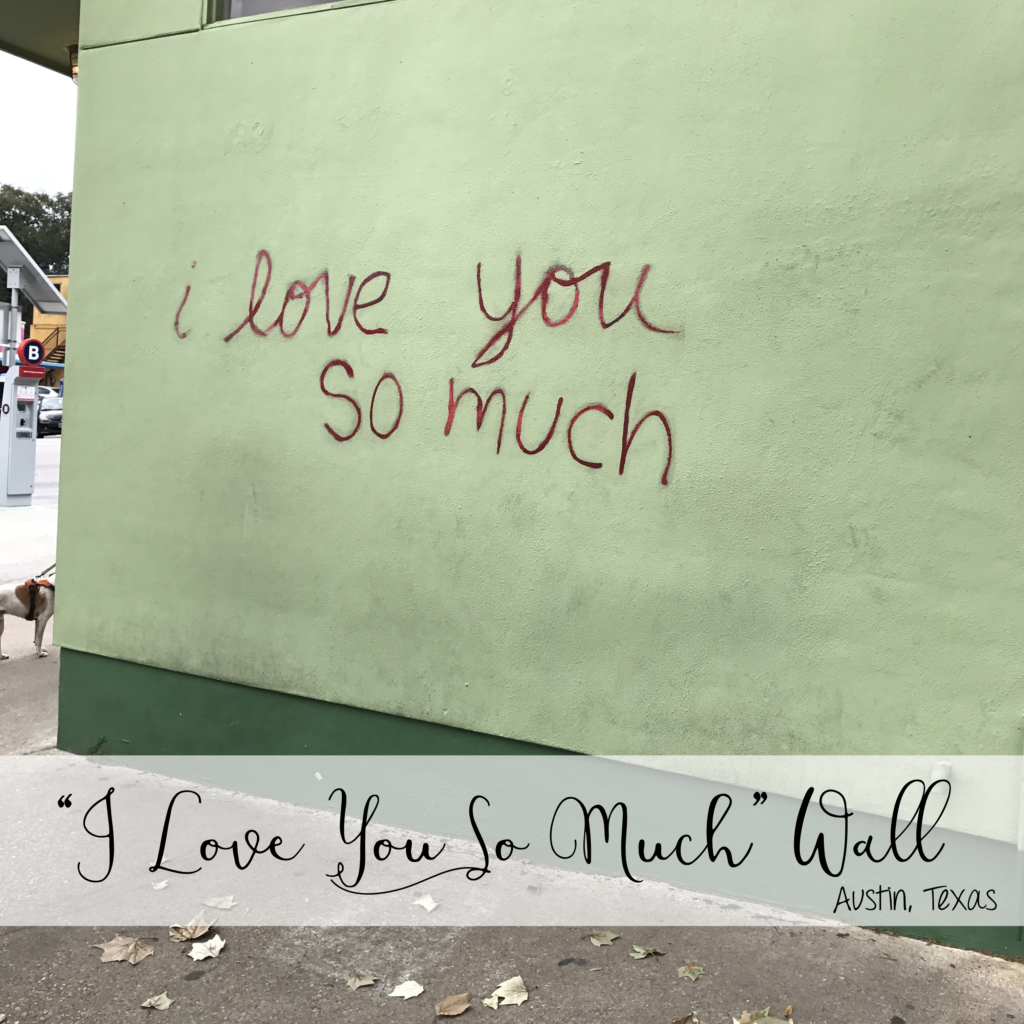 i love you
so much
B
"I Love You So Much" Wall
Austin, Texas